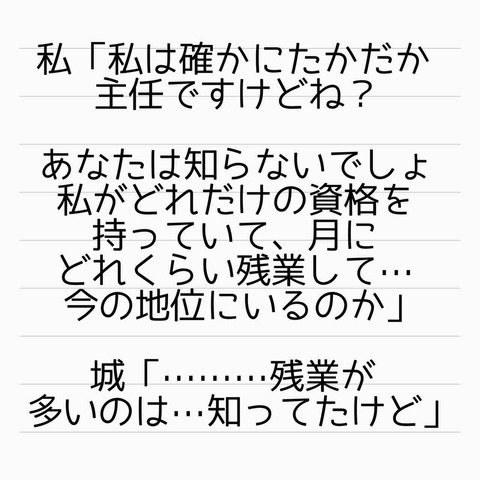 私「私は確かにたかだか
主任ですけどね？
あなたは知らないでしょ
私がどれだけの資格を
持っていて、月に
どれくらい残業して…
今の地位にいるのか」
城「………残業が
多いのは…知ってたけど」